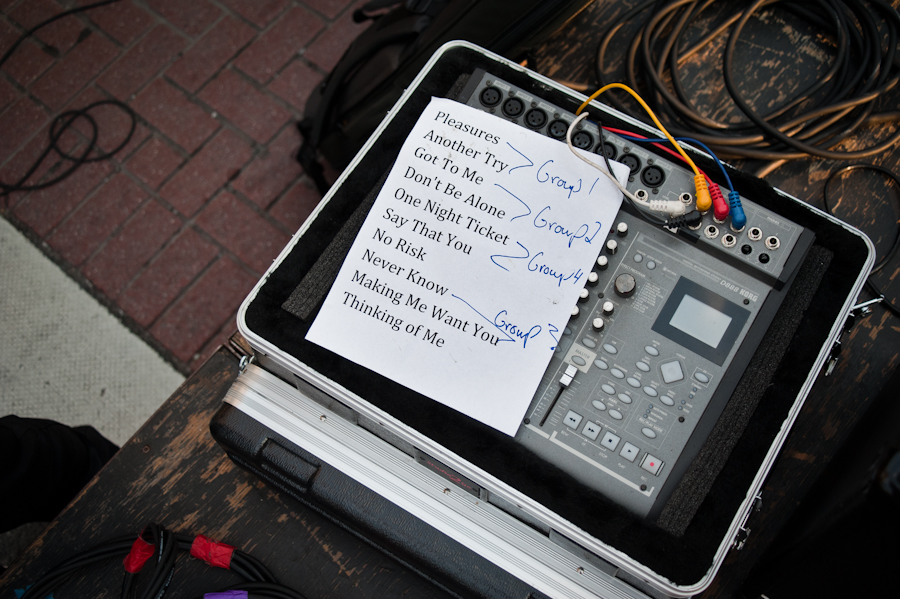 Pleasures
Another Try
Got To Me
Don't Be Alone
One Night Ticket
Say That You
No Risk
Never Know
Making Me Want You
Thinking of Me
Group 1
Group 2
Group 4
Group 3